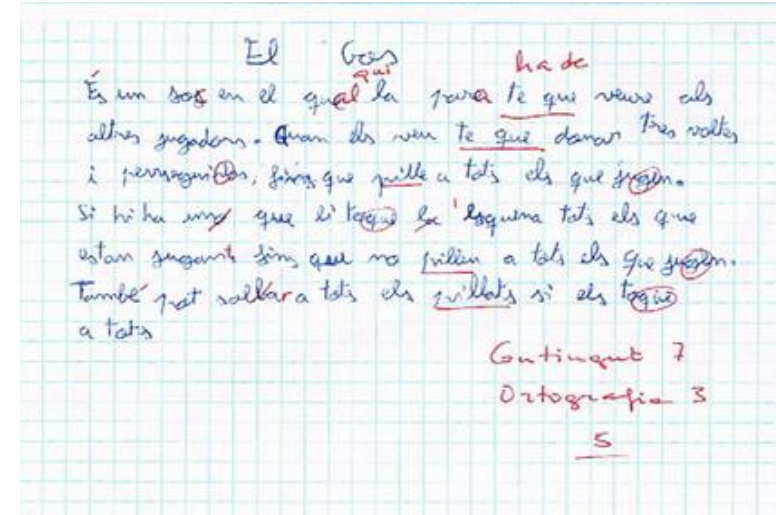 El Gos
qui ha de
És un sos en el qual la para te que veure als
altres jugadors. Quan els veu te que donar tres voltes
i perseguirlos, fins que pille a tots els que jugen.
Si hi ha un que li toque la esquena tots els que
estan jugant fins que no pillen a tots els que jugen.
També pot salvar a tots els pillats si els toque
a tots
Contingut 7
Ortografia 3
5